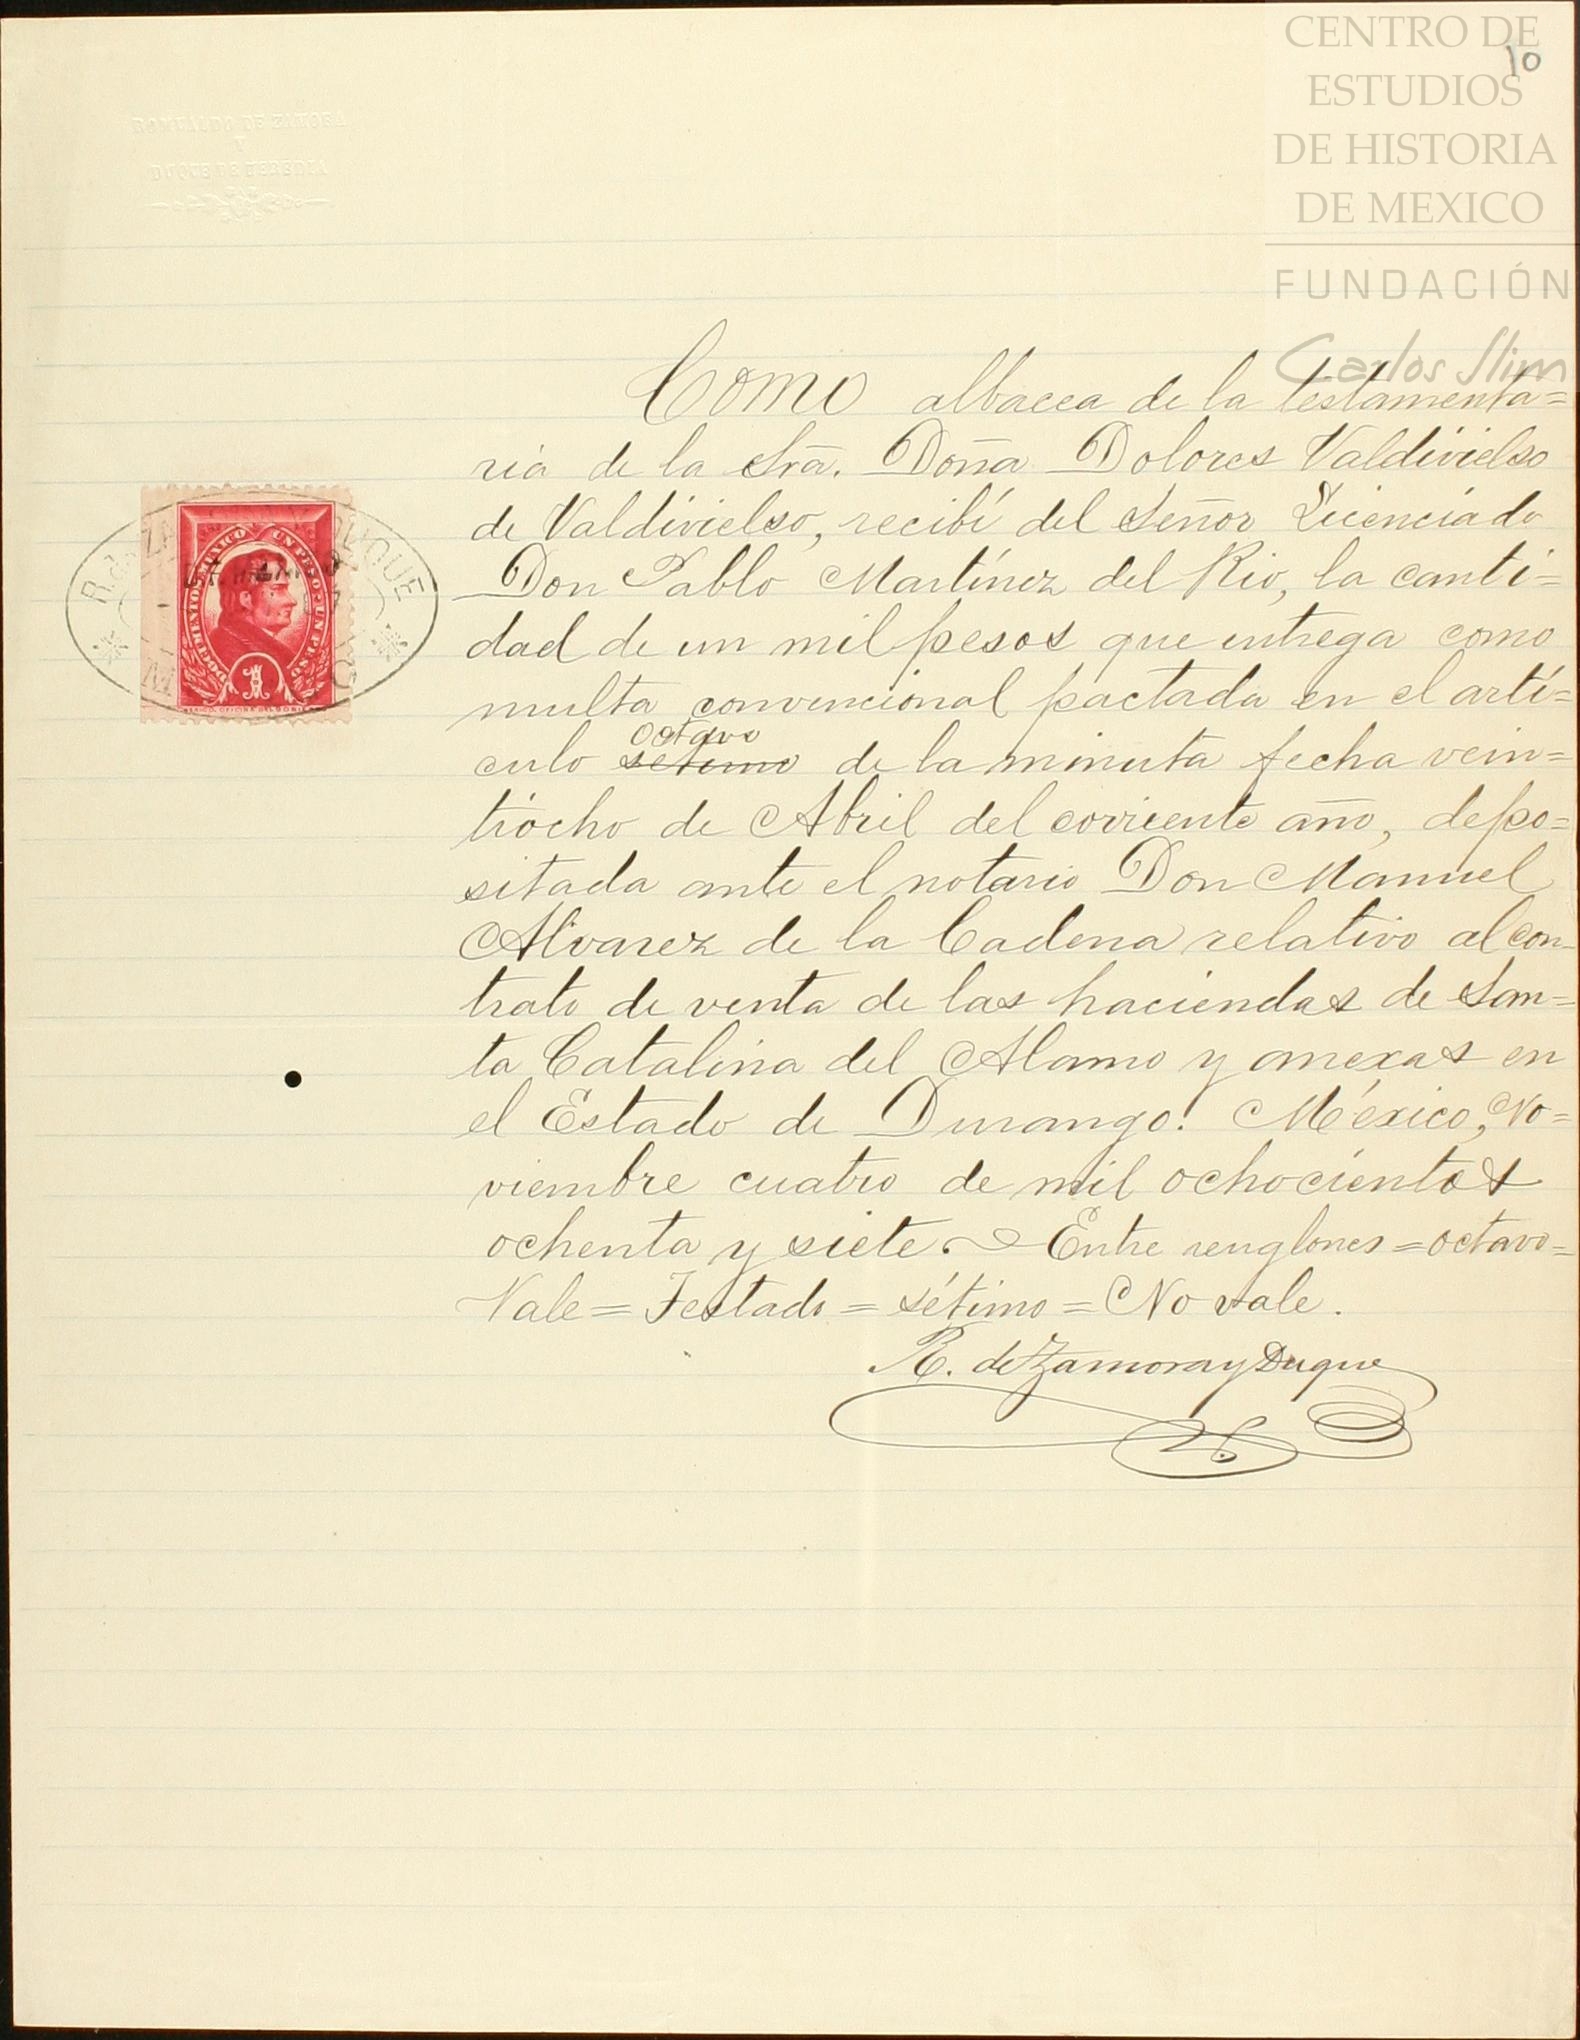 CENTRO DE
ESTUDIOS
DE HISTORIA
DE MEXICO
FUNDACIÓN
Carlos Slim
10
ROMUALDO DE ZAMORA
Y
DUQUE DE HEREDIA
Como albacea de la testamenta=
ria de la Srã. Doña Dolores Valdivielso
de Valdivielso, recibí del Señor Licenciado
Don Pablo Martínez del Rio, la canti=
dad de un mil pesos que entrega como
multa convencional pactada en el artí=
octavo
culo sétimo de la minuta fecha vein=
tiocho de Abril del corriente año, depo=
sitada ante el notario Don Manuel
Alvarez de la Cadena relativo al con=
trato de venta de las haciendas de San=
ta Catalina del Alamo y anexas en
el Estado de Durango. México, No=
viembre cuatro de mil ochocientos
ochenta y siete. Entre renglones = octavo =
Vale = Testado = sétimo = No vale.
R. de Zamora y Duque
R. de ZA DUQUE
DOCUMENTOS MEXICO UN PESO UN PESO
1
M O